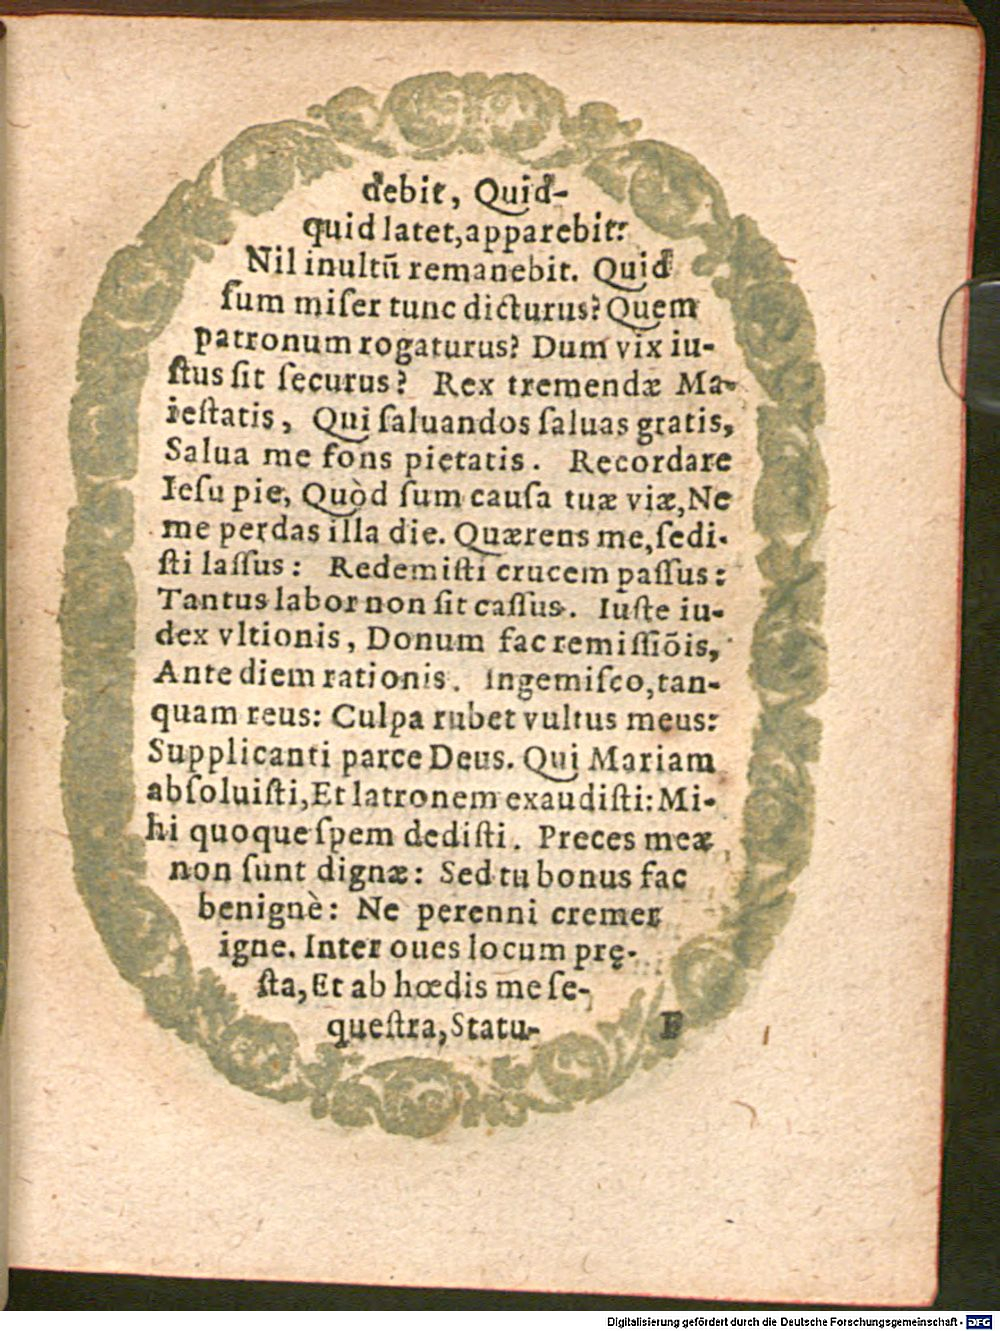 debit, Quid-
quid latet, apparebit:
Nil inultū remanebit. Quid
ſum miſer tunc dicturus? Quem
patronum rogaturus? Dum vix iu-
ſtus ſit ſecurus? Rex tremendæ Ma-
ieſtatis, Qui ſaluandos ſaluas gratis,
Salua me fons pietatis. Recordare
Ieſu pie, Quòd ſum cauſa tuæ viæ, Ne
me perdas illa die. Quærens me, ſedi-
ſti laſſus: Redemiſti crucem paſſus:
Tantus labor non ſit caſſus. Iuſte iu-
dex vltionis, Donum fac remiſſiōis,
Ante diem rationis. Ingemiſco, tan-
quam reus: Culpa rubet vultus meus:
Supplicanti parce Deus. Qui Mariam
abſoluiſti, Et latronem exaudiſti: Mi-
hi quoque ſpem dediſti. Preces meæ
non ſunt dignæ: Sed tu bonus fac
benignè: Ne perenni cremer
igne. Inter oues locum prę-
ſta, Et ab hœdis me ſe-
queſtra, Statu-
Digitalisierung gefördert durch die Deutsche Forschungsgemeinschaft - DFG